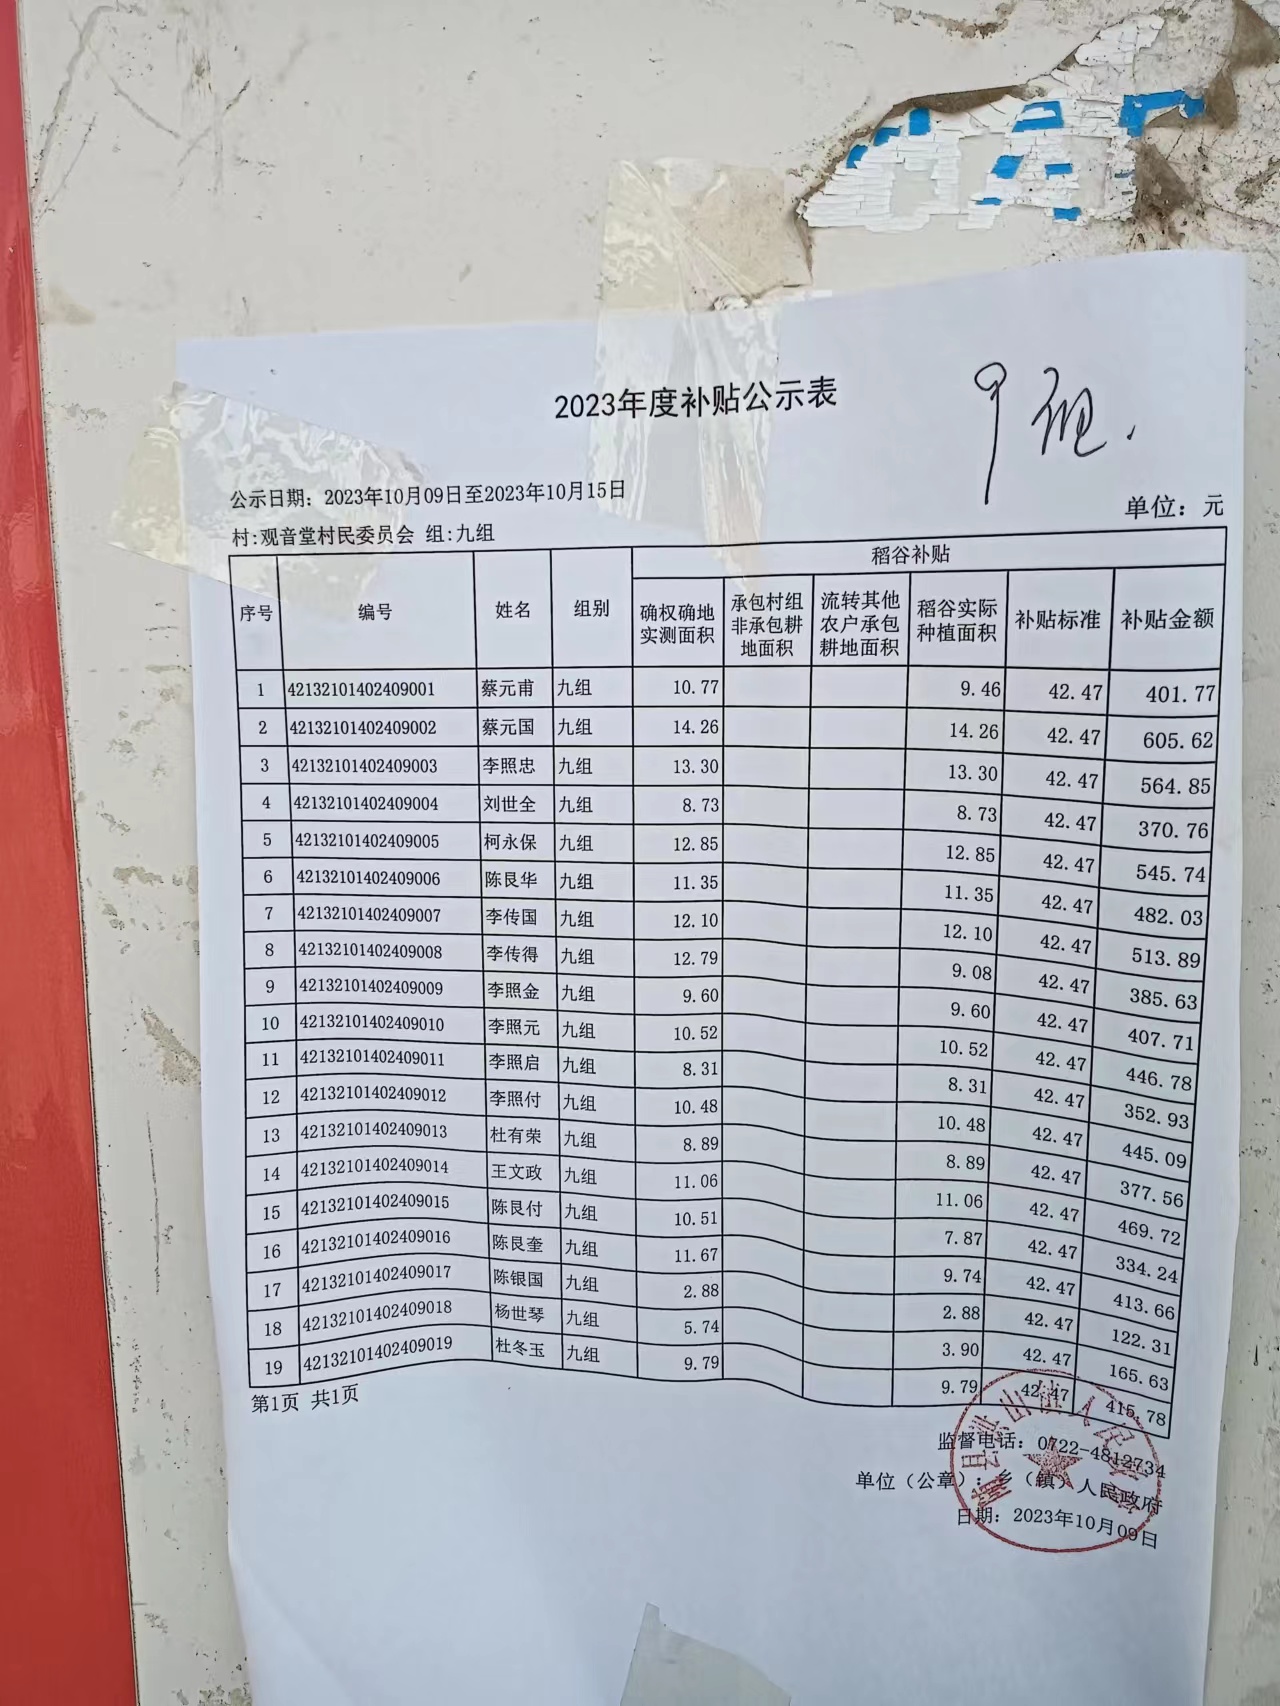 2023年度补贴公示表
公示日期：2023年10月09日至2023年10月15日
单位：元
村:观音堂村民委员会 组:九组
序号 编号 姓名 组别 稻谷补贴
确权确地实测面积 承包村组非承包耕地面积 流转其他农户承包耕地面积 稻谷实际种植面积 补贴标准 补贴金额
1 42132101402409001 蔡元甫 九组 10.77 9.46 42.47 401.77
2 42132101402409002 蔡元国 九组 14.26 14.26 42.47 605.62
3 42132101402409003 李照忠 九组 13.30 13.30 42.47 564.85
4 42132101402409004 刘世全 九组 8.73 8.73 42.47 370.76
5 42132101402409005 柯永保 九组 12.85 12.85 42.47 545.74
6 42132101402409006 陈艮华 九组 11.35 11.35 42.47 482.03
7 42132101402409007 李传国 九组 12.10 12.10 42.47 513.89
8 42132101402409008 李传得 九组 12.79 9.08 42.47 385.63
9 42132101402409009 李照金 九组 9.60 9.60 42.47 407.71
10 42132101402409010 李照元 九组 10.52 10.52 42.47 446.78
11 42132101402409011 李照启 九组 8.31 8.31 42.47 352.93
12 42132101402409012 李照付 九组 10.48 10.48 42.47 445.09
13 42132101402409013 杜有荣 九组 8.89 8.89 42.47 377.56
14 42132101402409014 王文政 九组 11.06 11.06 42.47 469.72
15 42132101402409015 陈艮付 九组 10.51 7.87 42.47 334.24
16 42132101402409016 陈艮奎 九组 11.67 9.74 42.47 413.66
17 42132101402409017 陈银国 九组 2.88 2.88 42.47 122.31
18 42132101402409018 杨世琴 九组 5.74 3.90 42.47 165.63
19 42132101402409019 杜冬玉 九组 9.79 9.79 42.47 415.78
第1页 共1页
监督电话：0722-4812734
单位（公章）：乡（镇）人民政府
日期：2023年10月09日